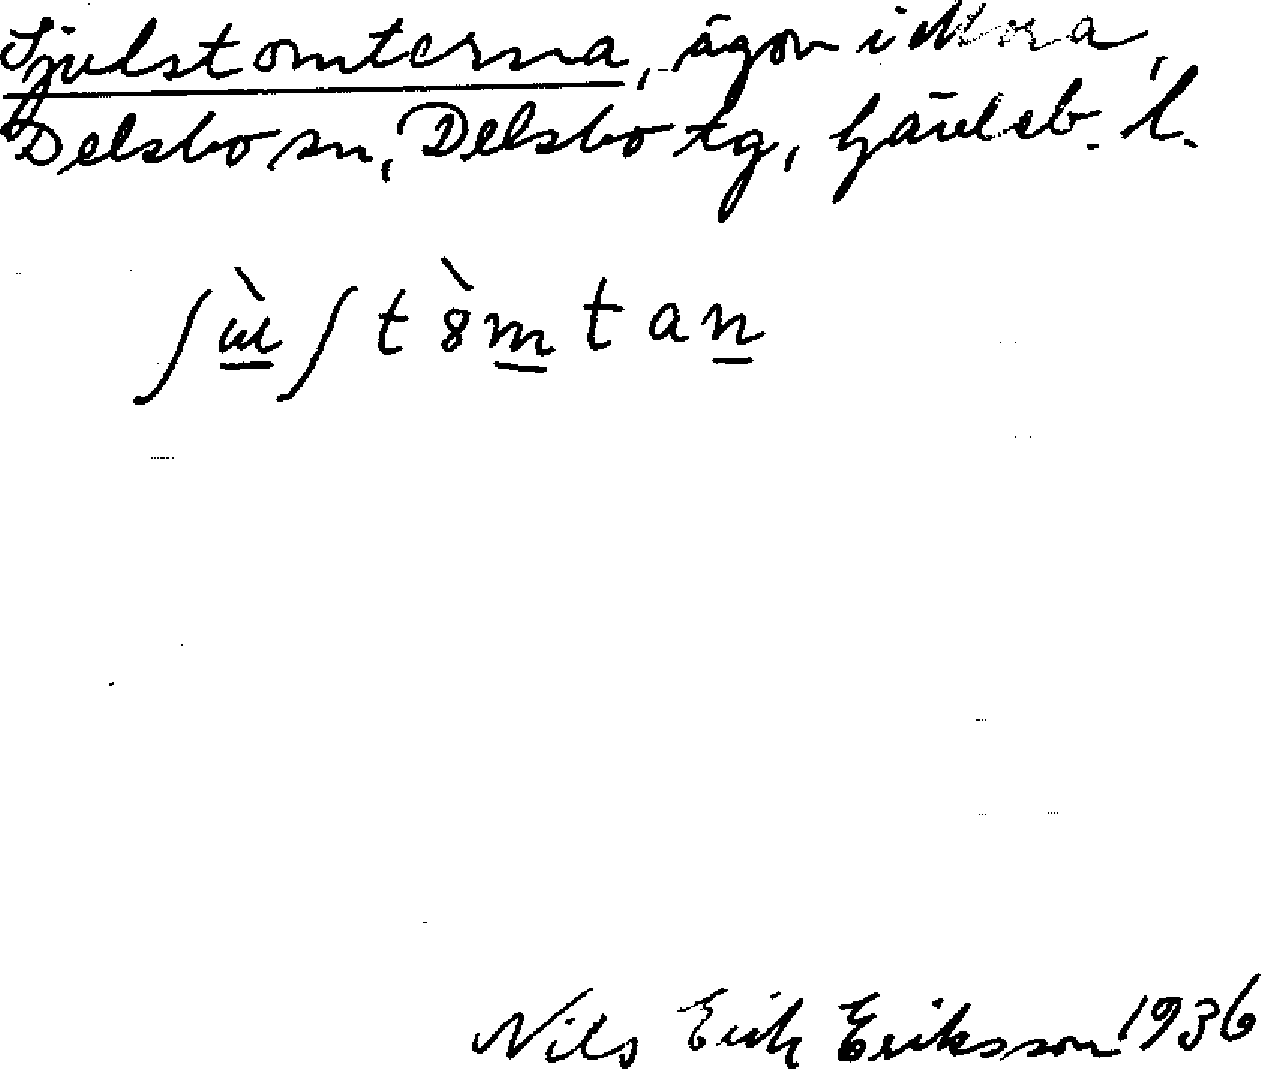 Sjulstomterna, ägor i Mora,
Delsbo sn, Delsbo tg, Gävleb. l.
ʃɯ̀ʃt òm̲tan̲
Nils Erik Eriksson 1936